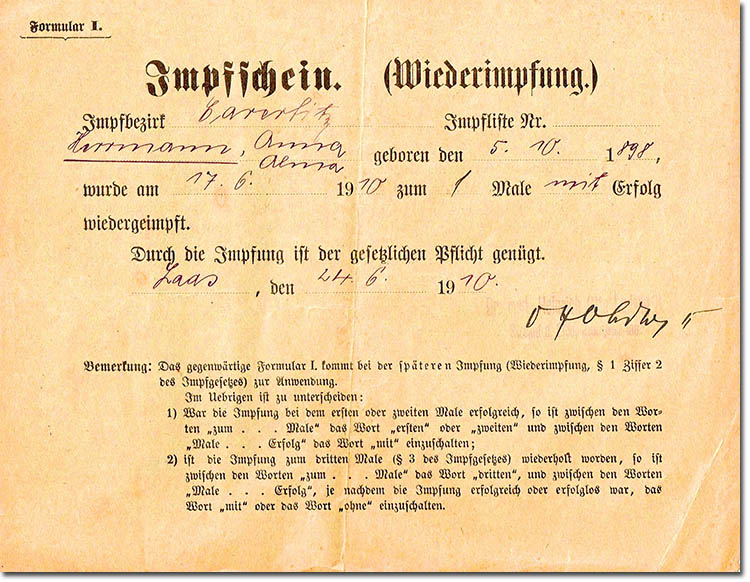 Formular I.
Impfschein. (Wiederimpfung.)
Impfbezirk Caverlitz Impfliste Nr.
Herrmann, Anna
Alma geboren den 5. 10. 1898,
wurde am 17. 6. 1910 zum 1 Male mit Erfolg
wiedergeimpft.
Durch die Impfung ist der gesetzlichen Pflicht genügt.
Laas, den 24. 6. 1910.
Bemerkung: Das gegenwärtige Formular I. kommt bei der späteren Impfung (Wiederimpfung, § 1 Ziffer 2
des Impfgesetzes) zur Anwendung.
Im Uebrigen ist zu unterscheiden:
1) War die Impfung bei dem ersten oder zweiten Male erfolgreich, so ist zwischen den Wor-
ten „zum . . . Male" das Wort „ersten" oder „zweiten" und zwischen den Worten
„Male . . . Erfolg" das Wort „mit" einzuschalten;
2) ist die Impfung zum dritten Male (§ 3 des Impfgesetzes) wiederholt worden, so ist
zwischen den Worten „zum . . . Male" das Wort „dritten", und zwischen den Worten
„Male . . . Erfolg", je nachdem die Impfung erfolgreich oder erfolglos war, das
Wort „mit" oder das Wort „ohne" einzuschalten.